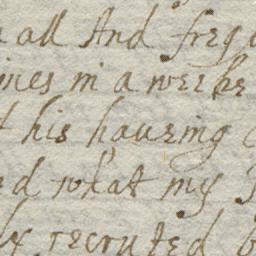 all And freq
in a weeke
his haueing
what my
recruted